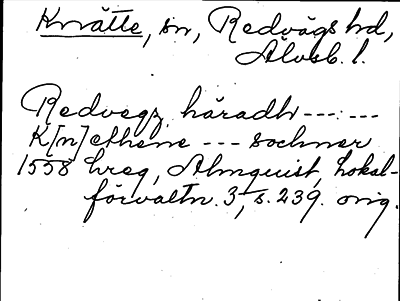 Knätte, sn, Redvägs hd,
Älvsb. l.
Redvegz häradh --- : ---
K[n]ethene --- sochner
1558 hreg, Almquist, Lokal-
förvaltn. 3, s. 239. orig.